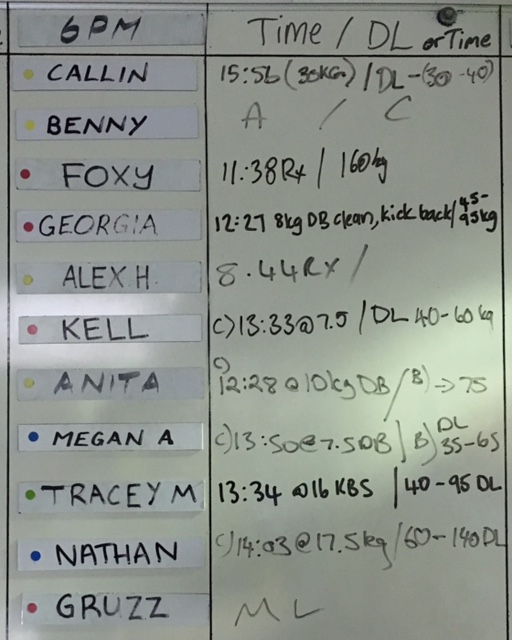 6PM Time / DL or Time
CALLIN 15:56 (30KG) / DL-(30-40)
BENNY A / C
FOXY 11:38Rx / 160kg
GEORGIA 12:27 8kg DB clean, kick back/ 45-95kg
ALEX H. 8.44RX /
KELL C) 13:33@7.5 / DL 40-60kg
ANITA C) 12:28 @10kg DB / B) → 75
MEGAN A C) 13:50@7.5DB / B) DL 35-65
TRACEY M 13:34 @16 KBS / 40-95 DL
NATHAN C) 14:03@17.5kg / 60-140DL
GRUZZ M L